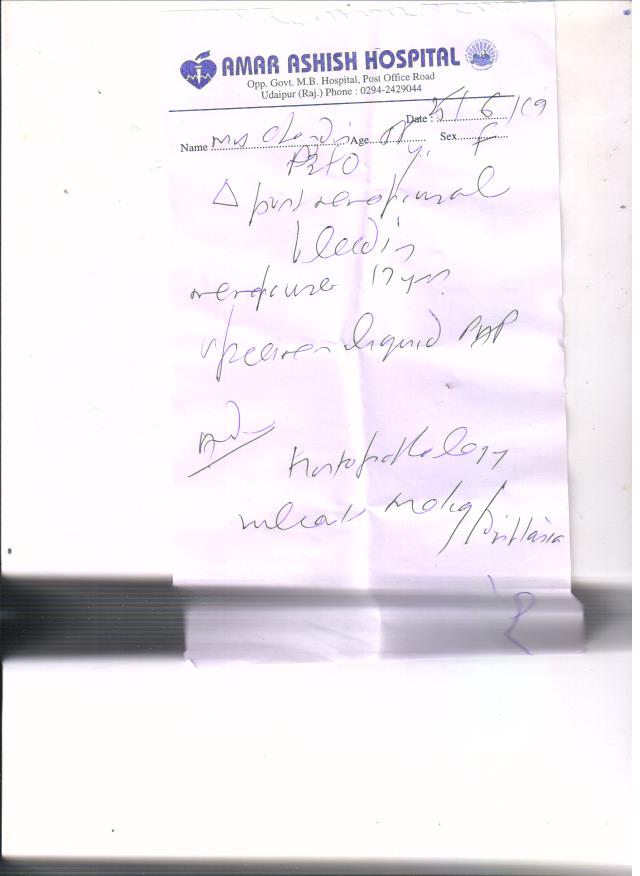 AMAR ASHISH HOSPITAL
Opp. Govt. M.B. Hospital, Post Office Road
Udaipur (Raj.) Phone : 0294-2429044
Date : 5/6/09
Name Mrs Age Sex F
P2+0
Δ post menopausal
bleedin
menopause 17 yrs
specimen liquid PAP
Ad
Histopathology